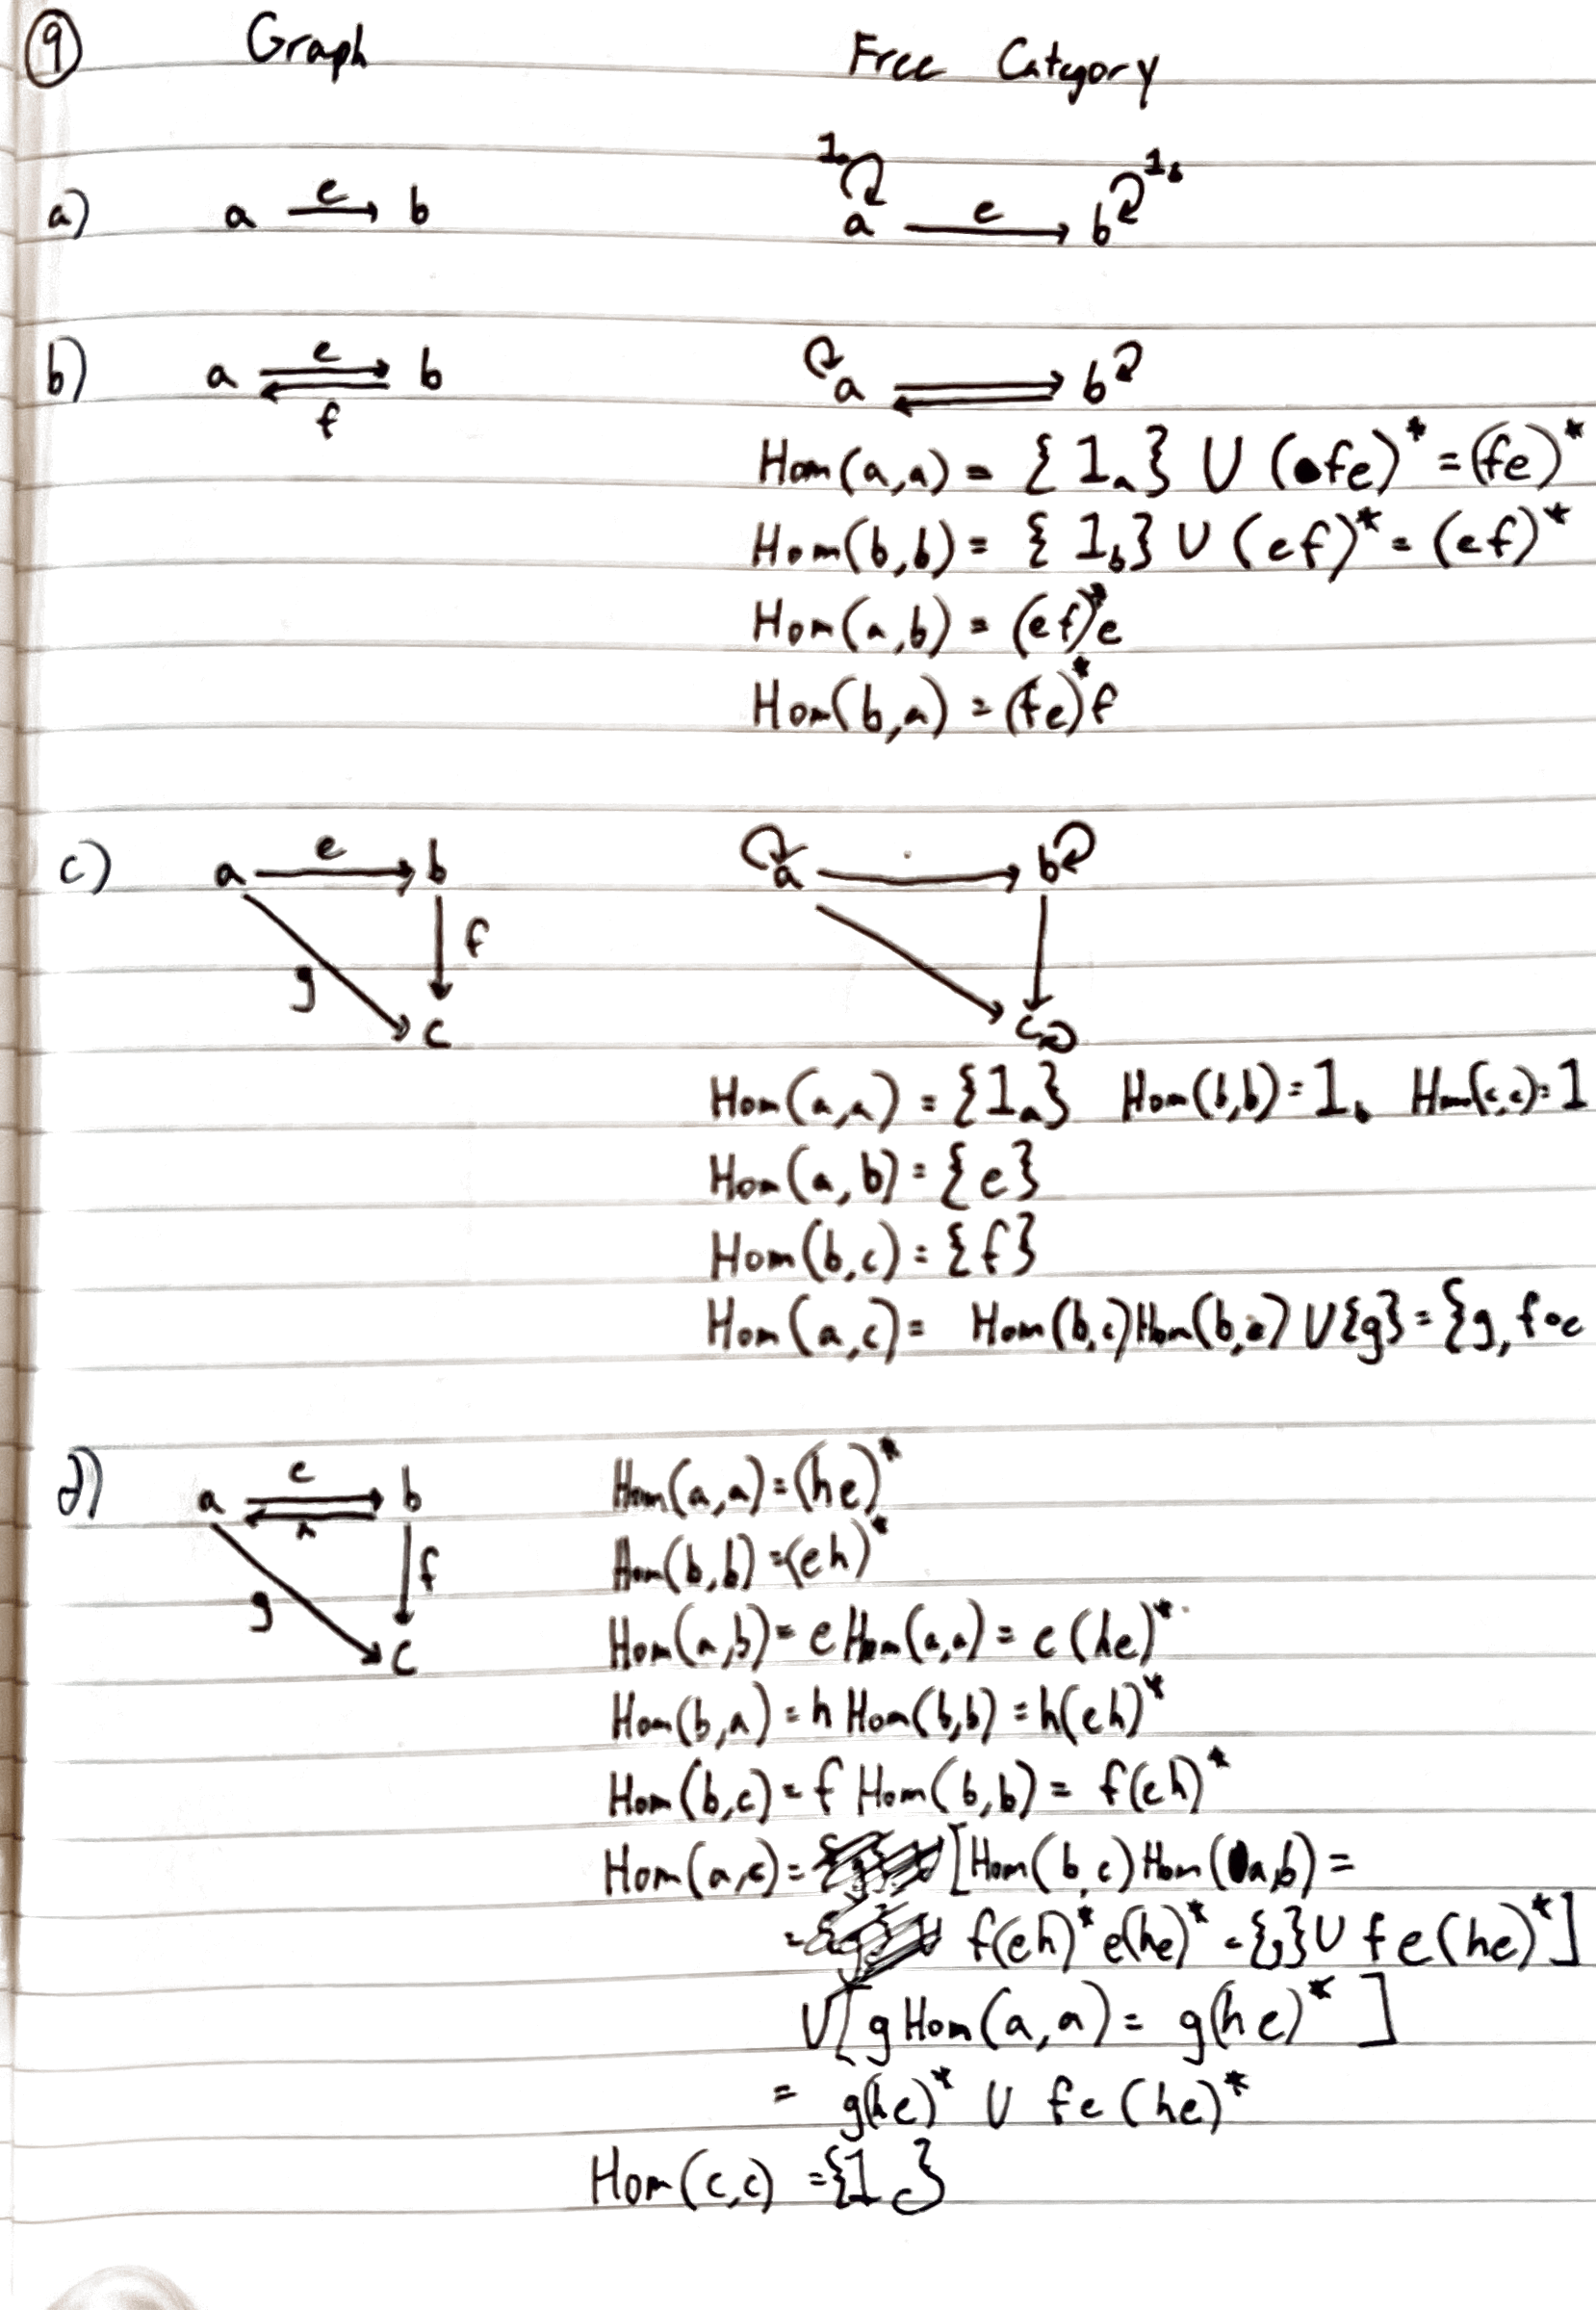 ⑨ Graph Free Category
a) a e b 1 a e b 1b
b) a e b f a b
Hom(a,a) = {1a} ∪ (fe)* = (fe)*
Hom(b,b) = {1b} ∪ (ef)* = (ef)*
Hom(a,b) = (ef)*e
Hom(b,a) = (fe)*f
c) a e b a b
f
g
c c
Hom(a,a) = {1a} Hom(b,b) = 1b Hom(c,c) = 1
Hom(a,b) = {e}
Hom(b,c) = {f}
Hom(a,c) = Hom(b,c)Hom(b,a) ∪ {g} = {g, f∘e
d) a e b Hom(a,a) = (he)*
h
Hom(b,b) = (eh)*
f
g Hom(a,b) = e Hom(a,a) = e(he)*
c
Hom(b,a) = h Hom(b,b) = h(eh)*
Hom(b,c) = f Hom(b,b) = f(eh)*
Hom(a,c) = [Hom(b,c)Hom(a,b) =
= f(eh)*e(he)* = {g} ∪ fe(he)*]
∪ [g Hom(a,a) = g(he)*]
= g(he)* ∪ fe(he)*
Hom(c,c) = {1c}